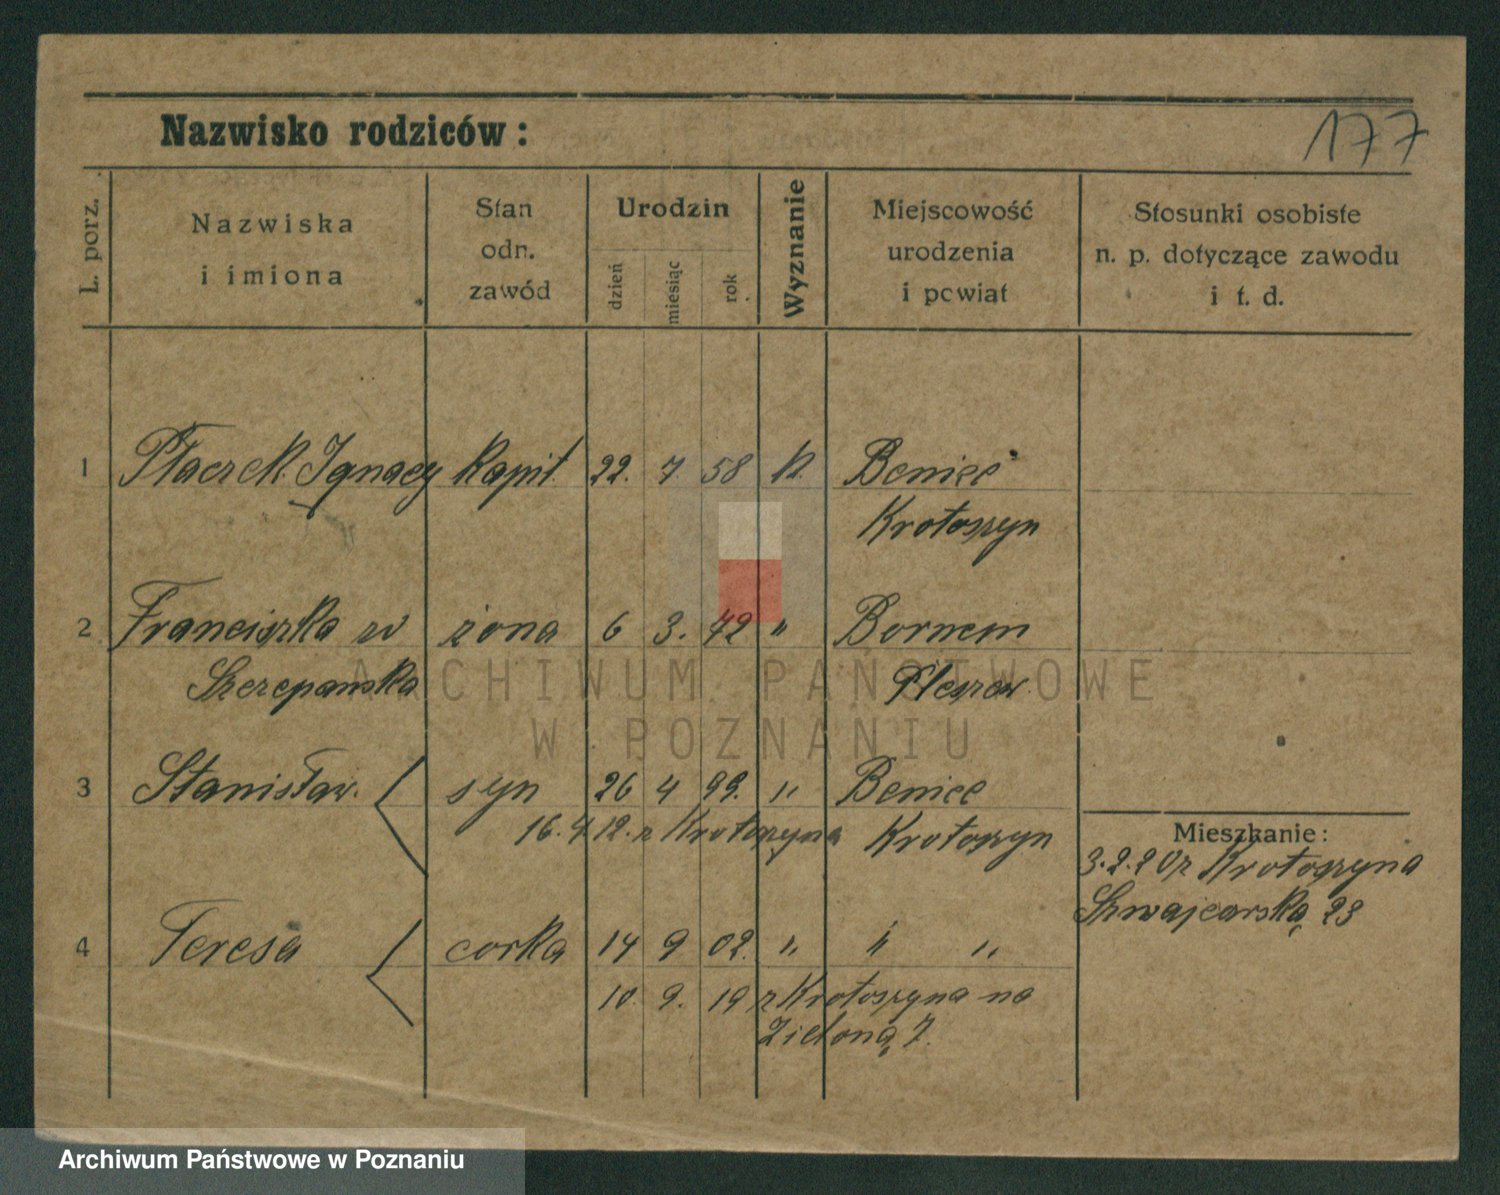 Nazwisko rodziców:
177
L. porz.
Nazwiska
i imiona
Stan
odn.
zawód
Urodzin
dzień
miesiąc
rok
Wyznanie
Miejscowość
urodzenia
i powiat
Stosunki osobiste
n. p. dotyczące zawodu
i t. d.
1 Ptaczek Ignacy kapit. 22. 7. 58 k. Benice
Krotoszyn
2 Franciszka w żona 6 3. 72 " Bornem
Szczepańska Pleszew.
3 Stanisław. syn 26 4 99. " Benice
16.4.12. z Krotoszyna Krotoszyn
Mieszkanie:
3.2.20 z Krotoszyna
Szwajcarska, 23
4 Teresa corka 14 9 02. " " "
10. 9. 19 z Krotoszyna na
Zieloną 7.
ARCHIWUM PAŃSTWOWE
W POZNANIU
Archiwum Państwowe w Poznaniu